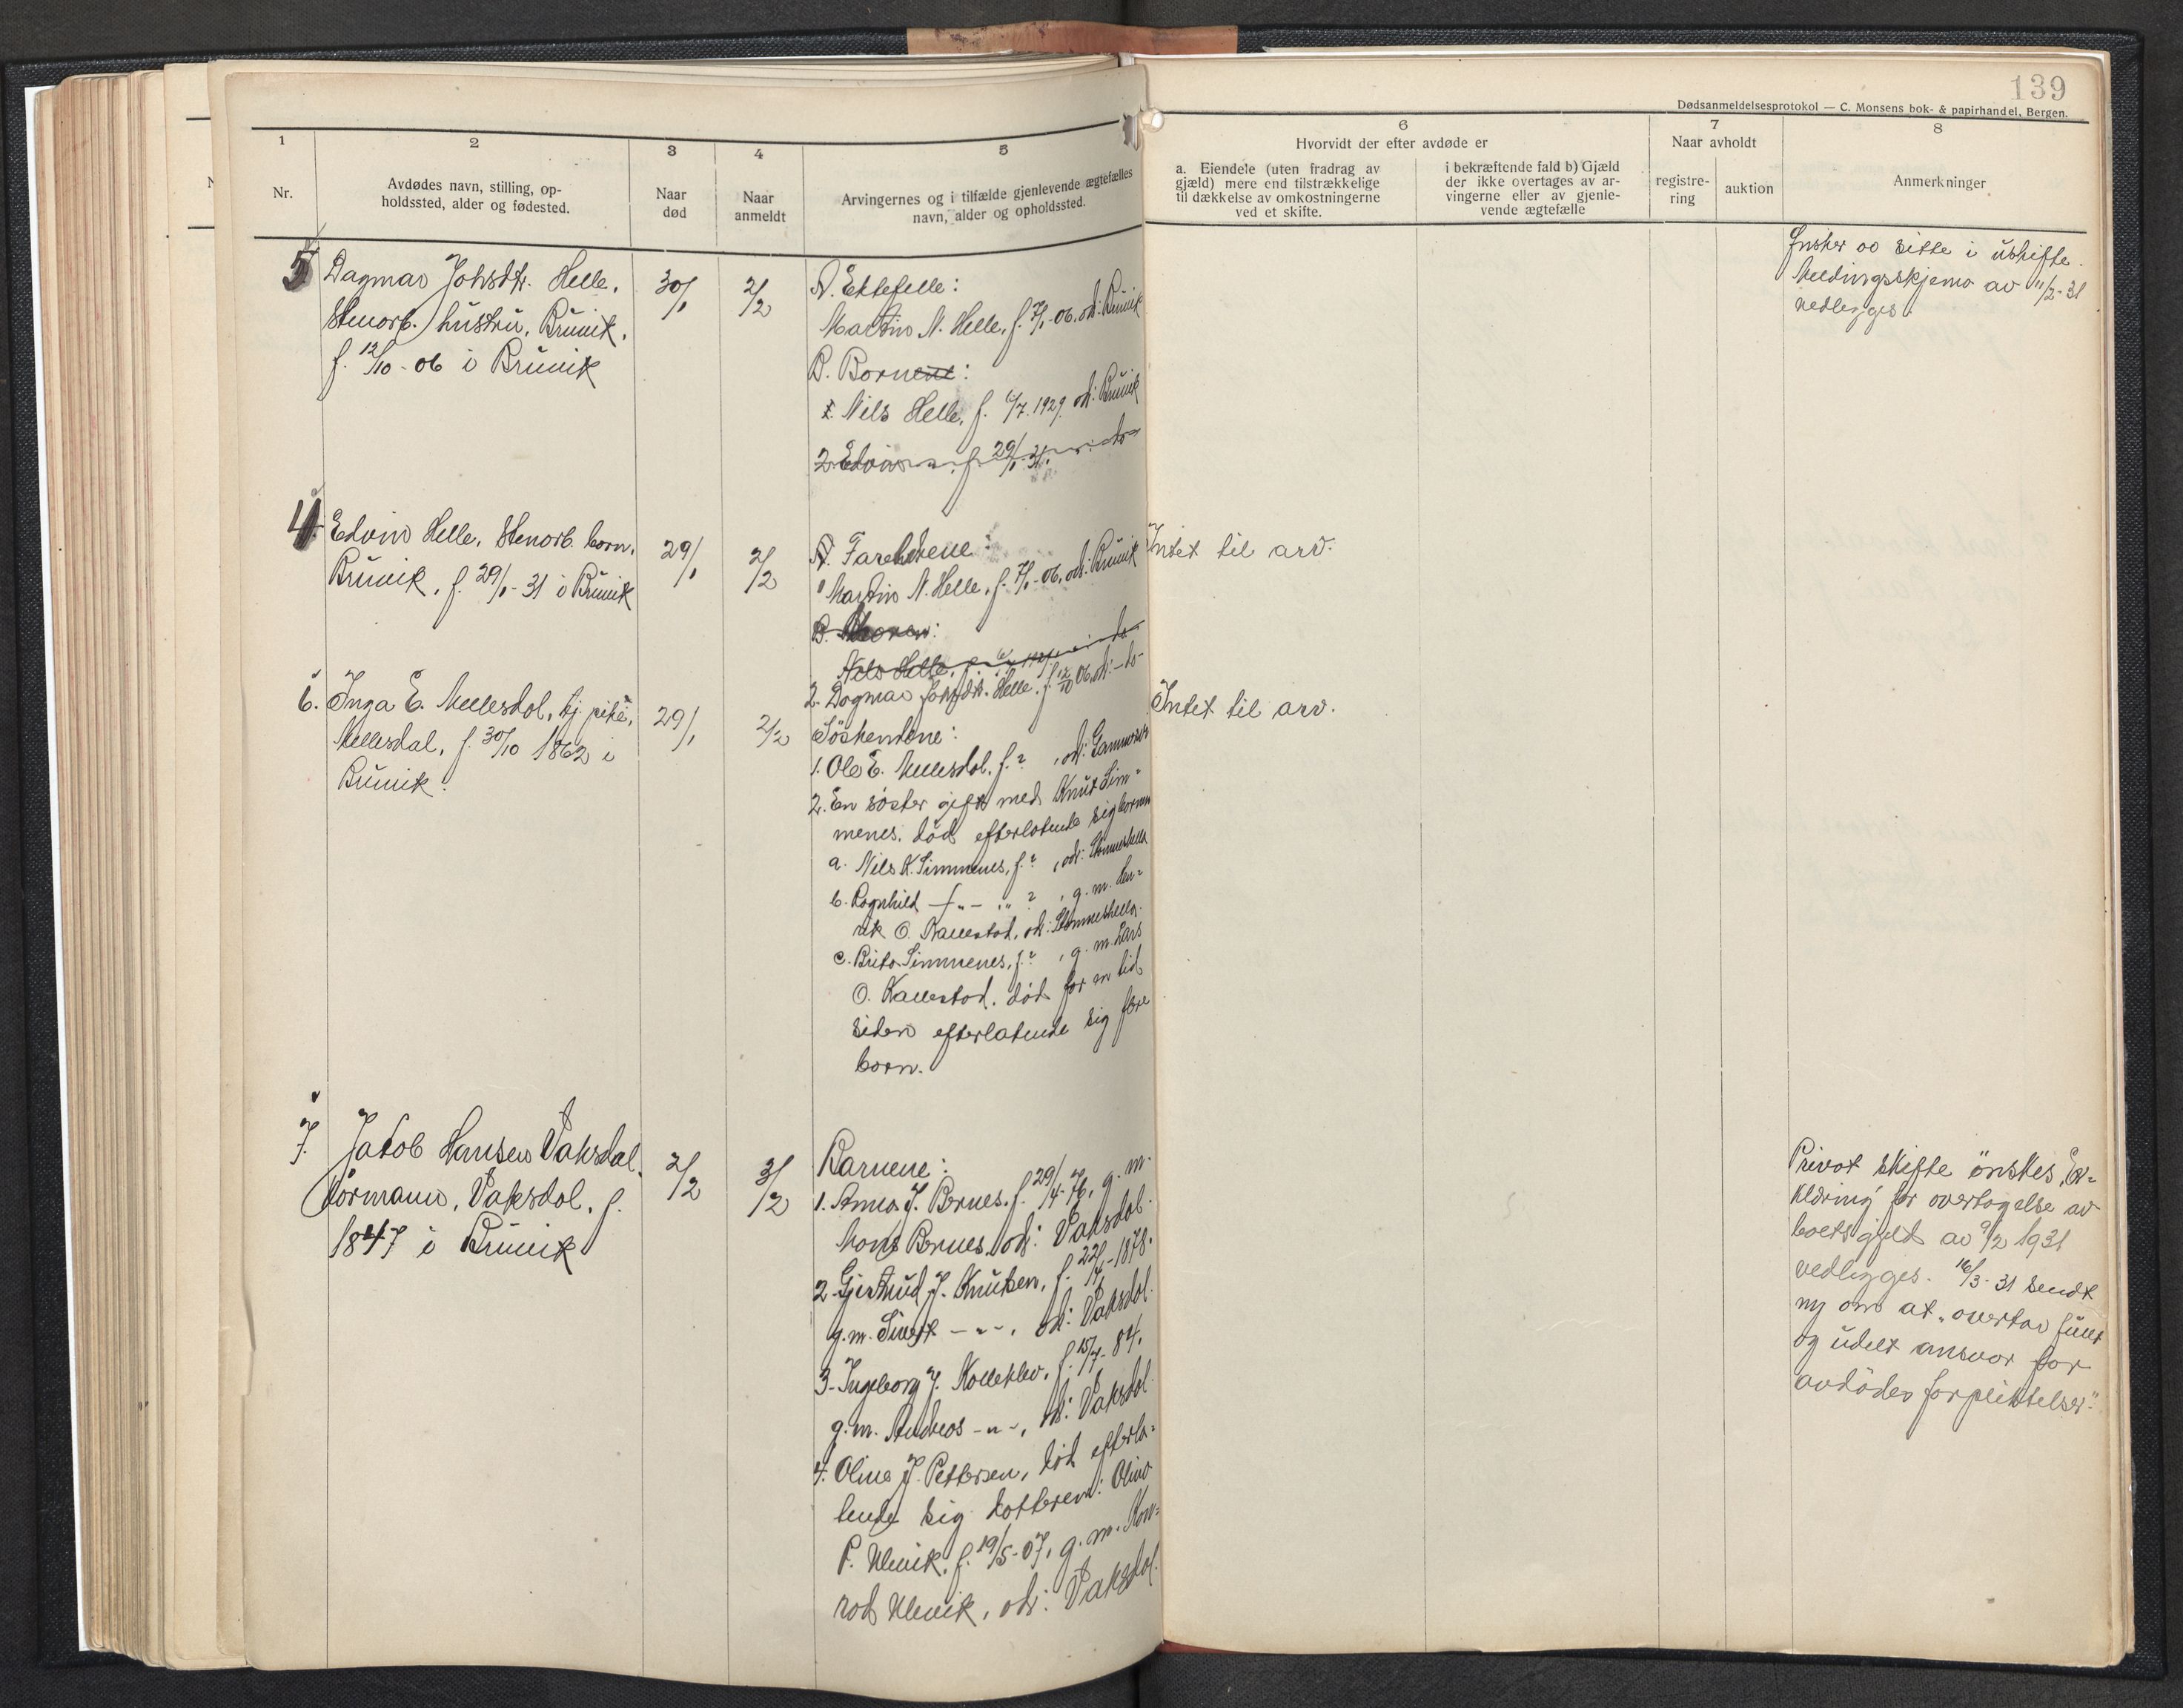 139
Dødsanmeldelsesprotokol — C. Monsens bok- & papirhandel, Bergen.
1
Nr.
2
Avdødes navn, stilling, op-
holdssted, alder og fødested.
3
Naar
død
4
Naar
anmeldt
5
Arvingernes og i tilfælde gjenlevende ægtefælles
navn, alder og opholdssted.
6
Hvorvidt der efter avdøde er
a. Eiendele (uten fradrag av
gjæld) mere end tilstrækkelige
til dækkelse av omkostningerne
ved et skifte.
i bekræftende fald b) Gjæld
der ikke overtages av ar-
vingerne eller av gjenle-
vende ægtefælle
7
Naar avholdt
registre-
ring
auktion
8
Anmerkninger
5
Dagmar Johsdtr. Helle,
Stenarb. hustru, Bruvik,
f. 12/10-06 i Bruvik
30/1
2/2
A. Ektefelle:
Martin N. Helle, f. 7/1-06, ods: Bruvik
B. Bornene:
1. Nils Helle, f. 6/7.1929. ods: Bruvik
2 Edvin f 29/1-31.
Ønsker å sitte i uskifte.
Meldingsskjema av 11/2-31
vedlegges.
4
Edvin Helle, Stenarb. born,
Bruvik, f. 29/1-31 i Bruvik
29/1
2/2
A. Foreldrene:
1 Martin N. Helle, f. 7/1-06, ods: Bruvik
B.
Nils Helle, f.
2. Dagmar Johsdtr. Helle, f. 12/10 06, ods: -do-
Intet til arv.
6.
Inga E. Mellesdal, tj. pike,
Mellesdal, f. 30/10 1862 i
Bruvik.
29/1
2/2
Söskendene:
1. Ole E. Mellesdal, f. ? , ods:
2. En söster gift med Knut Sim-
menes, död efterlatende sig bornene
a. Nils K. Simmenes, f. ? , ods: Stamneshella
b. Ragnhild -"- " ? , g. m. Hen-
rik O. Kallestad, ods: Stamneshella.
c. Brita Simmenes, f. ? , g. m. Lars
O. Kallestad, död for en tid
siden efterlatende sig flere
born.
Intet til arv.
7.
Jakob Hansen Vaksdal,
formann, Vaksdal, f.
1847 i Bruvik
2/2
3/2
Barnene:
1. Anna J. Bernes, f. 29/4-76, g. m.
Mons Bernes, ods: Vaksdal.
2 Gjertrud J. Knutsen, f. 22/4-1878.
g.m. Sivert -"-, ods: Vaksdal.
3. Ingeborg J. Kalleklev, f. 15/4-84,
g. m. Andreas -"-, ods: Vaksdal.
4. Oline J. Pettersen, död efterla-
tende sig datteren: Olivia
P. Ulevik, f. 19/5-07, g. m. Kon-
rad Ulevik, ods: Vaksdal.
Privat skifte önskes. Er-
klæring for overtagelse av
boets gjeld av 9/2 1931
vedlegges. 16/3-31 sendt
ny om at "overtar fullt
og udelt ansvar for
avdödes forpliktelser".